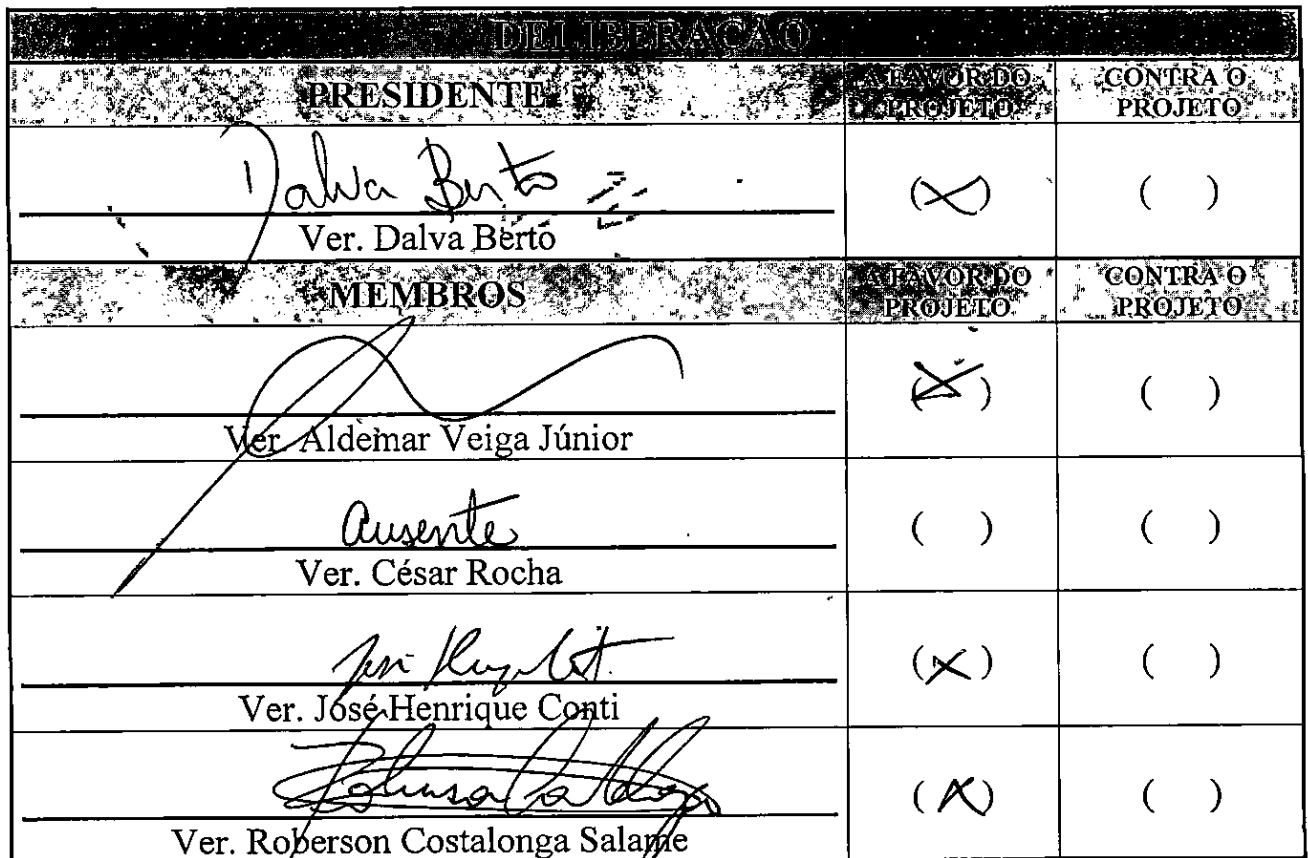 DELIBERAÇÃO
PRESIDENTE A FAVOR DO PROJETO CONTRA O PROJETO
Dalva Berto (X) ( )
Ver. Dalva Berto
MEMBROS A FAVOR DO PROJETO CONTRA O PROJETO
(X) ( )
Ver. Aldemar Veiga Júnior
ausente ( ) ( )
Ver. César Rocha
(X) ( )
Ver. José Henrique Conti
(X) ( )
Ver. Roberson Costalonga Salame